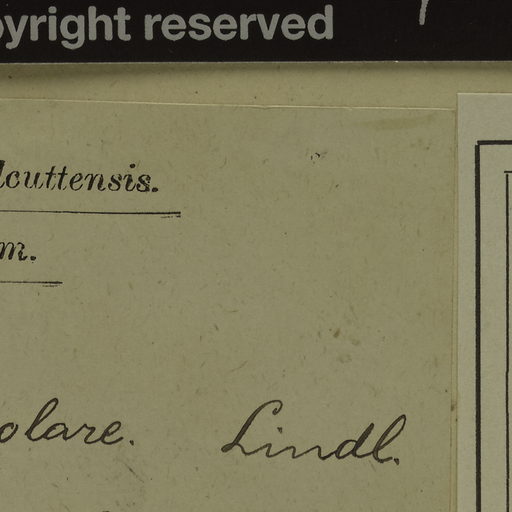 pyright reserved
lcuttensis.
m.
olare. Lindl.